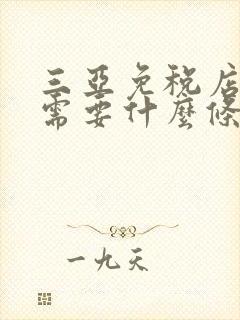 三亞免稅店
需要什麼條
一九天